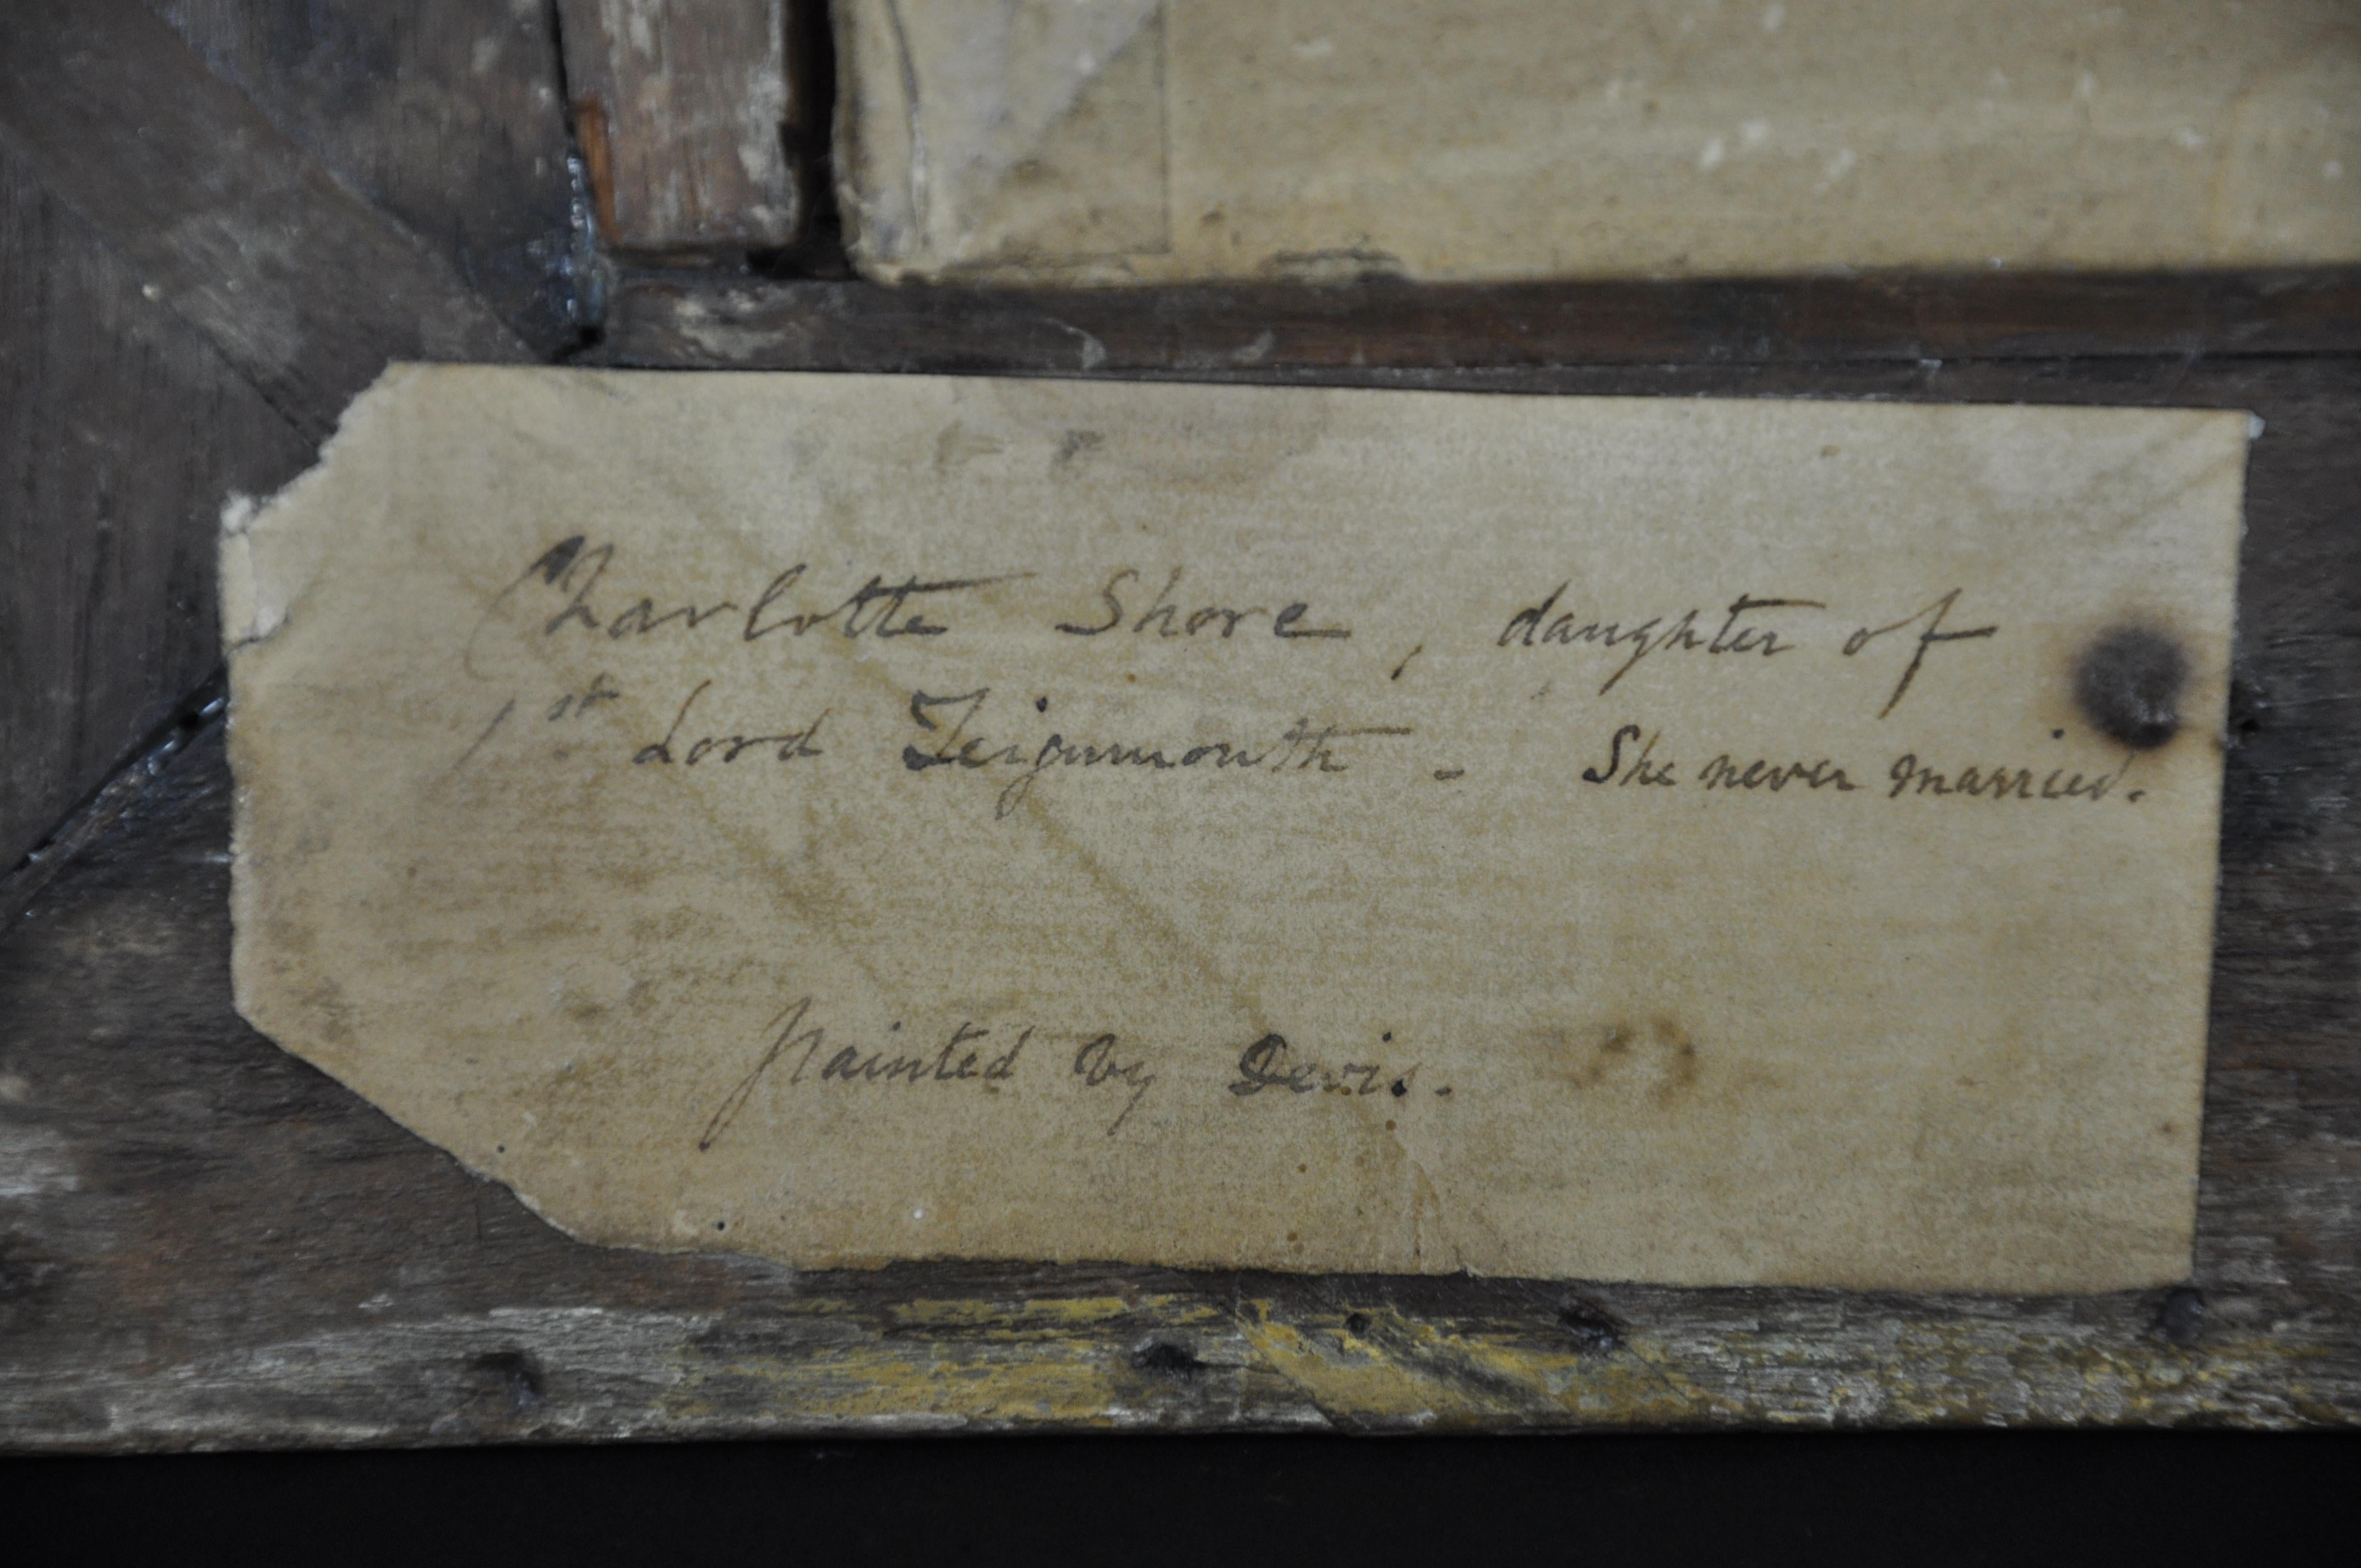 Charlotte Shore, daughter of
1st Lord Teignmouth - She never married.
painted by Devis.